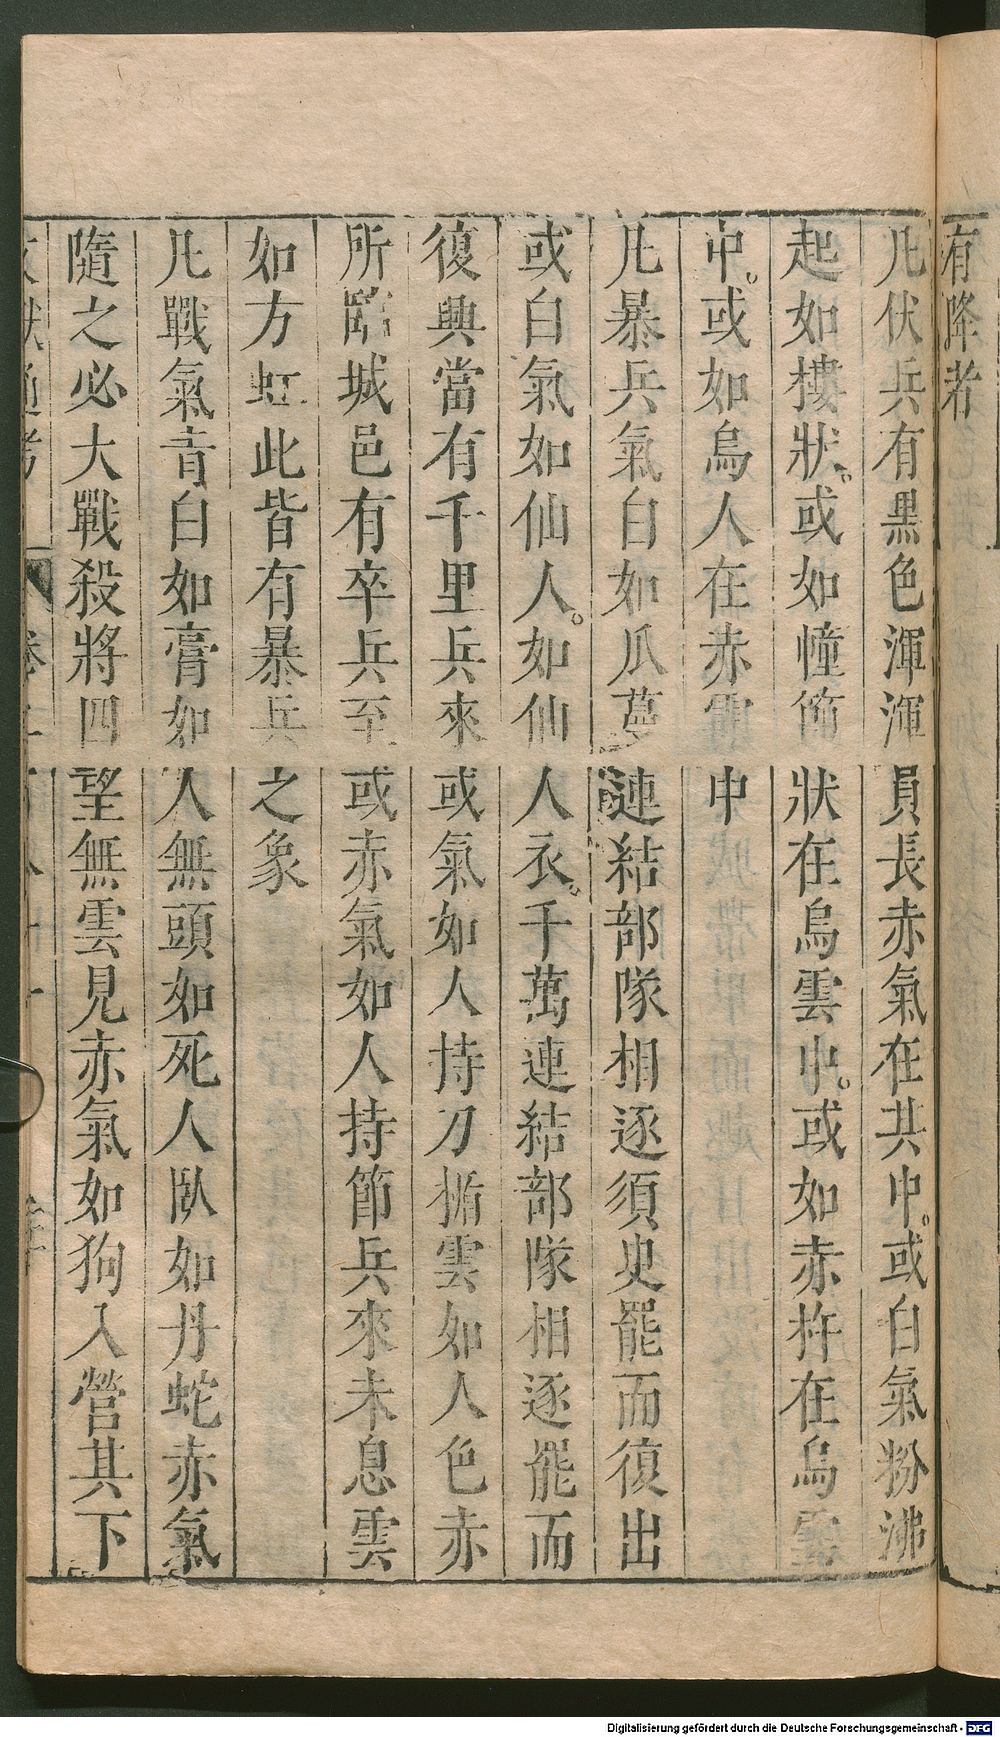 有降者
凡伏兵有黑色渾渾員長赤氣在其中。或白氣粉沸
起如樓狀。或如幢節狀在烏雲中。或如赤杵在烏雲
中。或如烏人在赤雲中
凡暴兵氣白如瓜蔓連結部隊相逐須史罷而復出
或白氣如仙人。如仙人衣。千萬連結部隊相逐罷而
復興當有千里兵來或氣如人持刀楯雲如人色赤
所臨城邑有卒兵至或赤氣如人持節兵來未息雲
如方虹此皆有暴兵之象
凡戰氣音白如膏如人無頭如死人臥如丹蛇赤氣
隨之必大戰殺將四望無雲見赤氣如狗入營其下
文獻通考 卷二百八十一
Digitalisierung gefördert durch die Deutsche Forschungsgemeinschaft - DFG